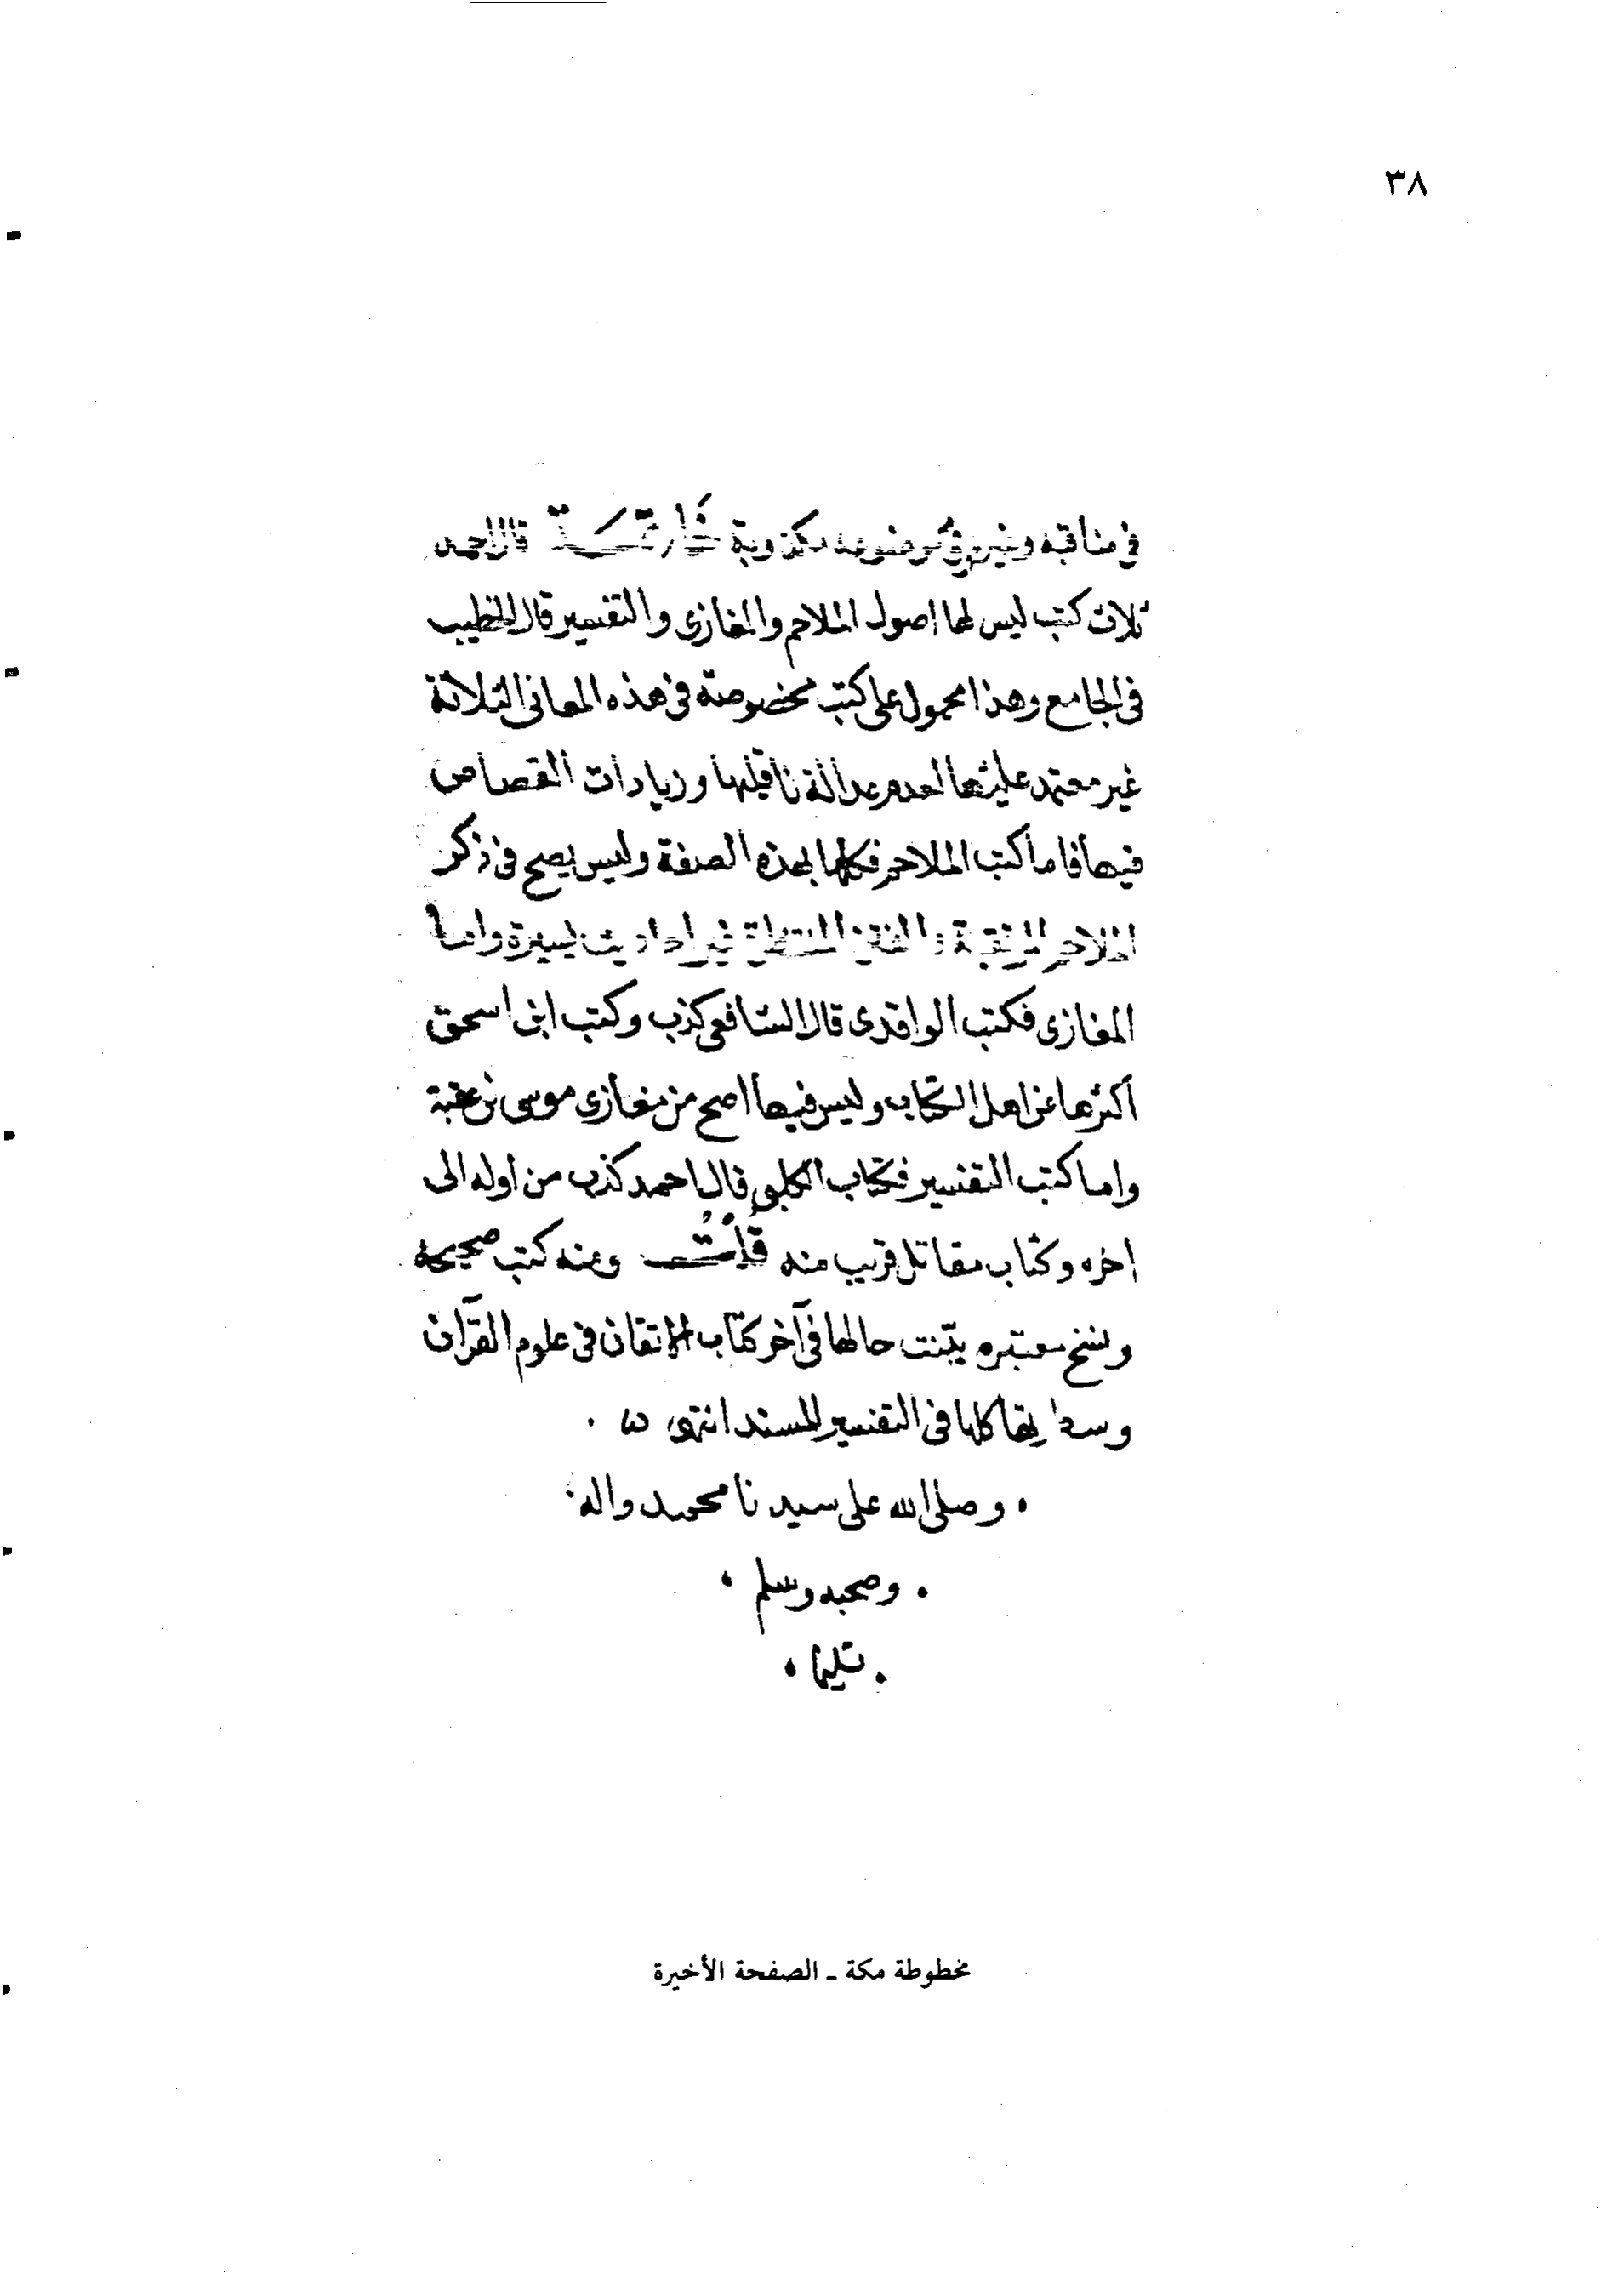 ٣٨
في مناقبه وغيره في موضوعه مكذوبة خاتمة قال احمد
ثلاث كتب ليس لها اصول الملاحم والمغازى والتفسير قال الخطيب
في الجامع وهذا محمول على كتب مخصوصة في هذه المعانى الثلاثة
غير معتمد عليها لعدم عدالة ناقليها وزيادات القصاص
فيها فاما كتب الملاحم فكلها بهذه الصفة وليس يصح في ذكر
الملاحم المرتقبة والفتن المنتظرة غير احاديث يسيرة واما
المغازى فكتب الواقدى قال الشافعى كذب وكتب ابن اسحق
اكثرها عن اهل الكتاب وليس فيها اصح من مغازى موسى بن عقبة
واما كتب التفسير فكتاب الكلبى قال احمد كذب من اوله الى
اخره وكتاب مقاتل قريب منه قلت ومنه كتب صحيحة
ونسخ معتبره بينت حالها في آخر كتاب الاتقان في علوم القرآن
كلها في التفسير المسند انتهى
وصلى الله على سيدنا محمد واله
وصحبه وسلم
تسليما
مخطوطة مكة ـ الصفحة الأخيرة